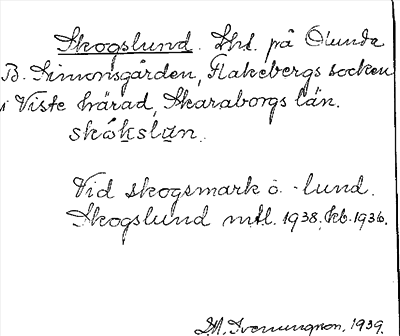 Skogslund. Lht. på Ölunda
B. Simonsgården, Flakebergs socken
i Viste härad, Skaraborgs län.
skókslun.
Vid skogsmark o. -lund.
Skogslund mtl. 1938, kb. 1936.
1939.